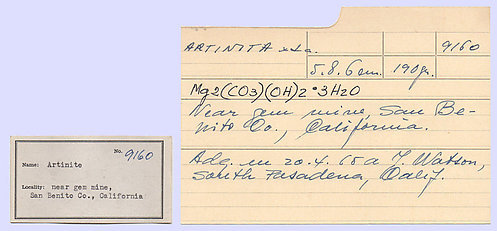 No. 9160
Name: Artinite
Locality: near gem mine,
San Benito Co., California
ARTINITA xta. 9160
5.8.6 cm. 190gr.
Mg2(CO3)(OH)2•3H2O
Near gem mine, San Be-
nito Co., California.
Adq. en 20.4.68 a J. Watson,
South Pasadena, Calif.